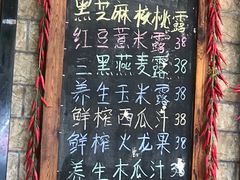 黑芝麻核桃露
红豆薏米露 38
三黑燕麦露 38
养生玉米露 38
鲜榨西瓜汁 38
鲜榨火龙果 38
养生木瓜汁 38